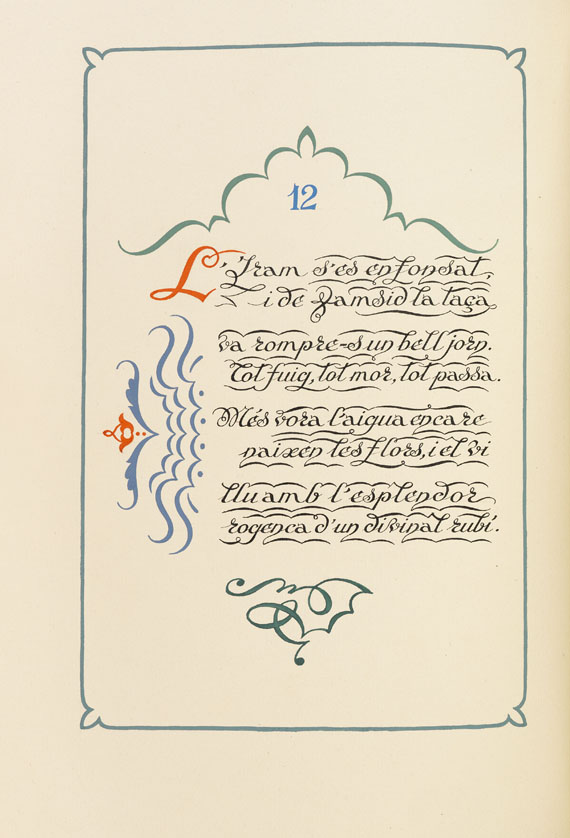 12
L'Iram s'es enfonsat,
i de Jamsid la taça
va rompre-s un bell jorn.
Tot fuig, tot mor, tot passa.
Més vora l'aigua encare
naixen les flors, i el vi
lluu amb l'esplendor
rogenca d'un divinal rubí.